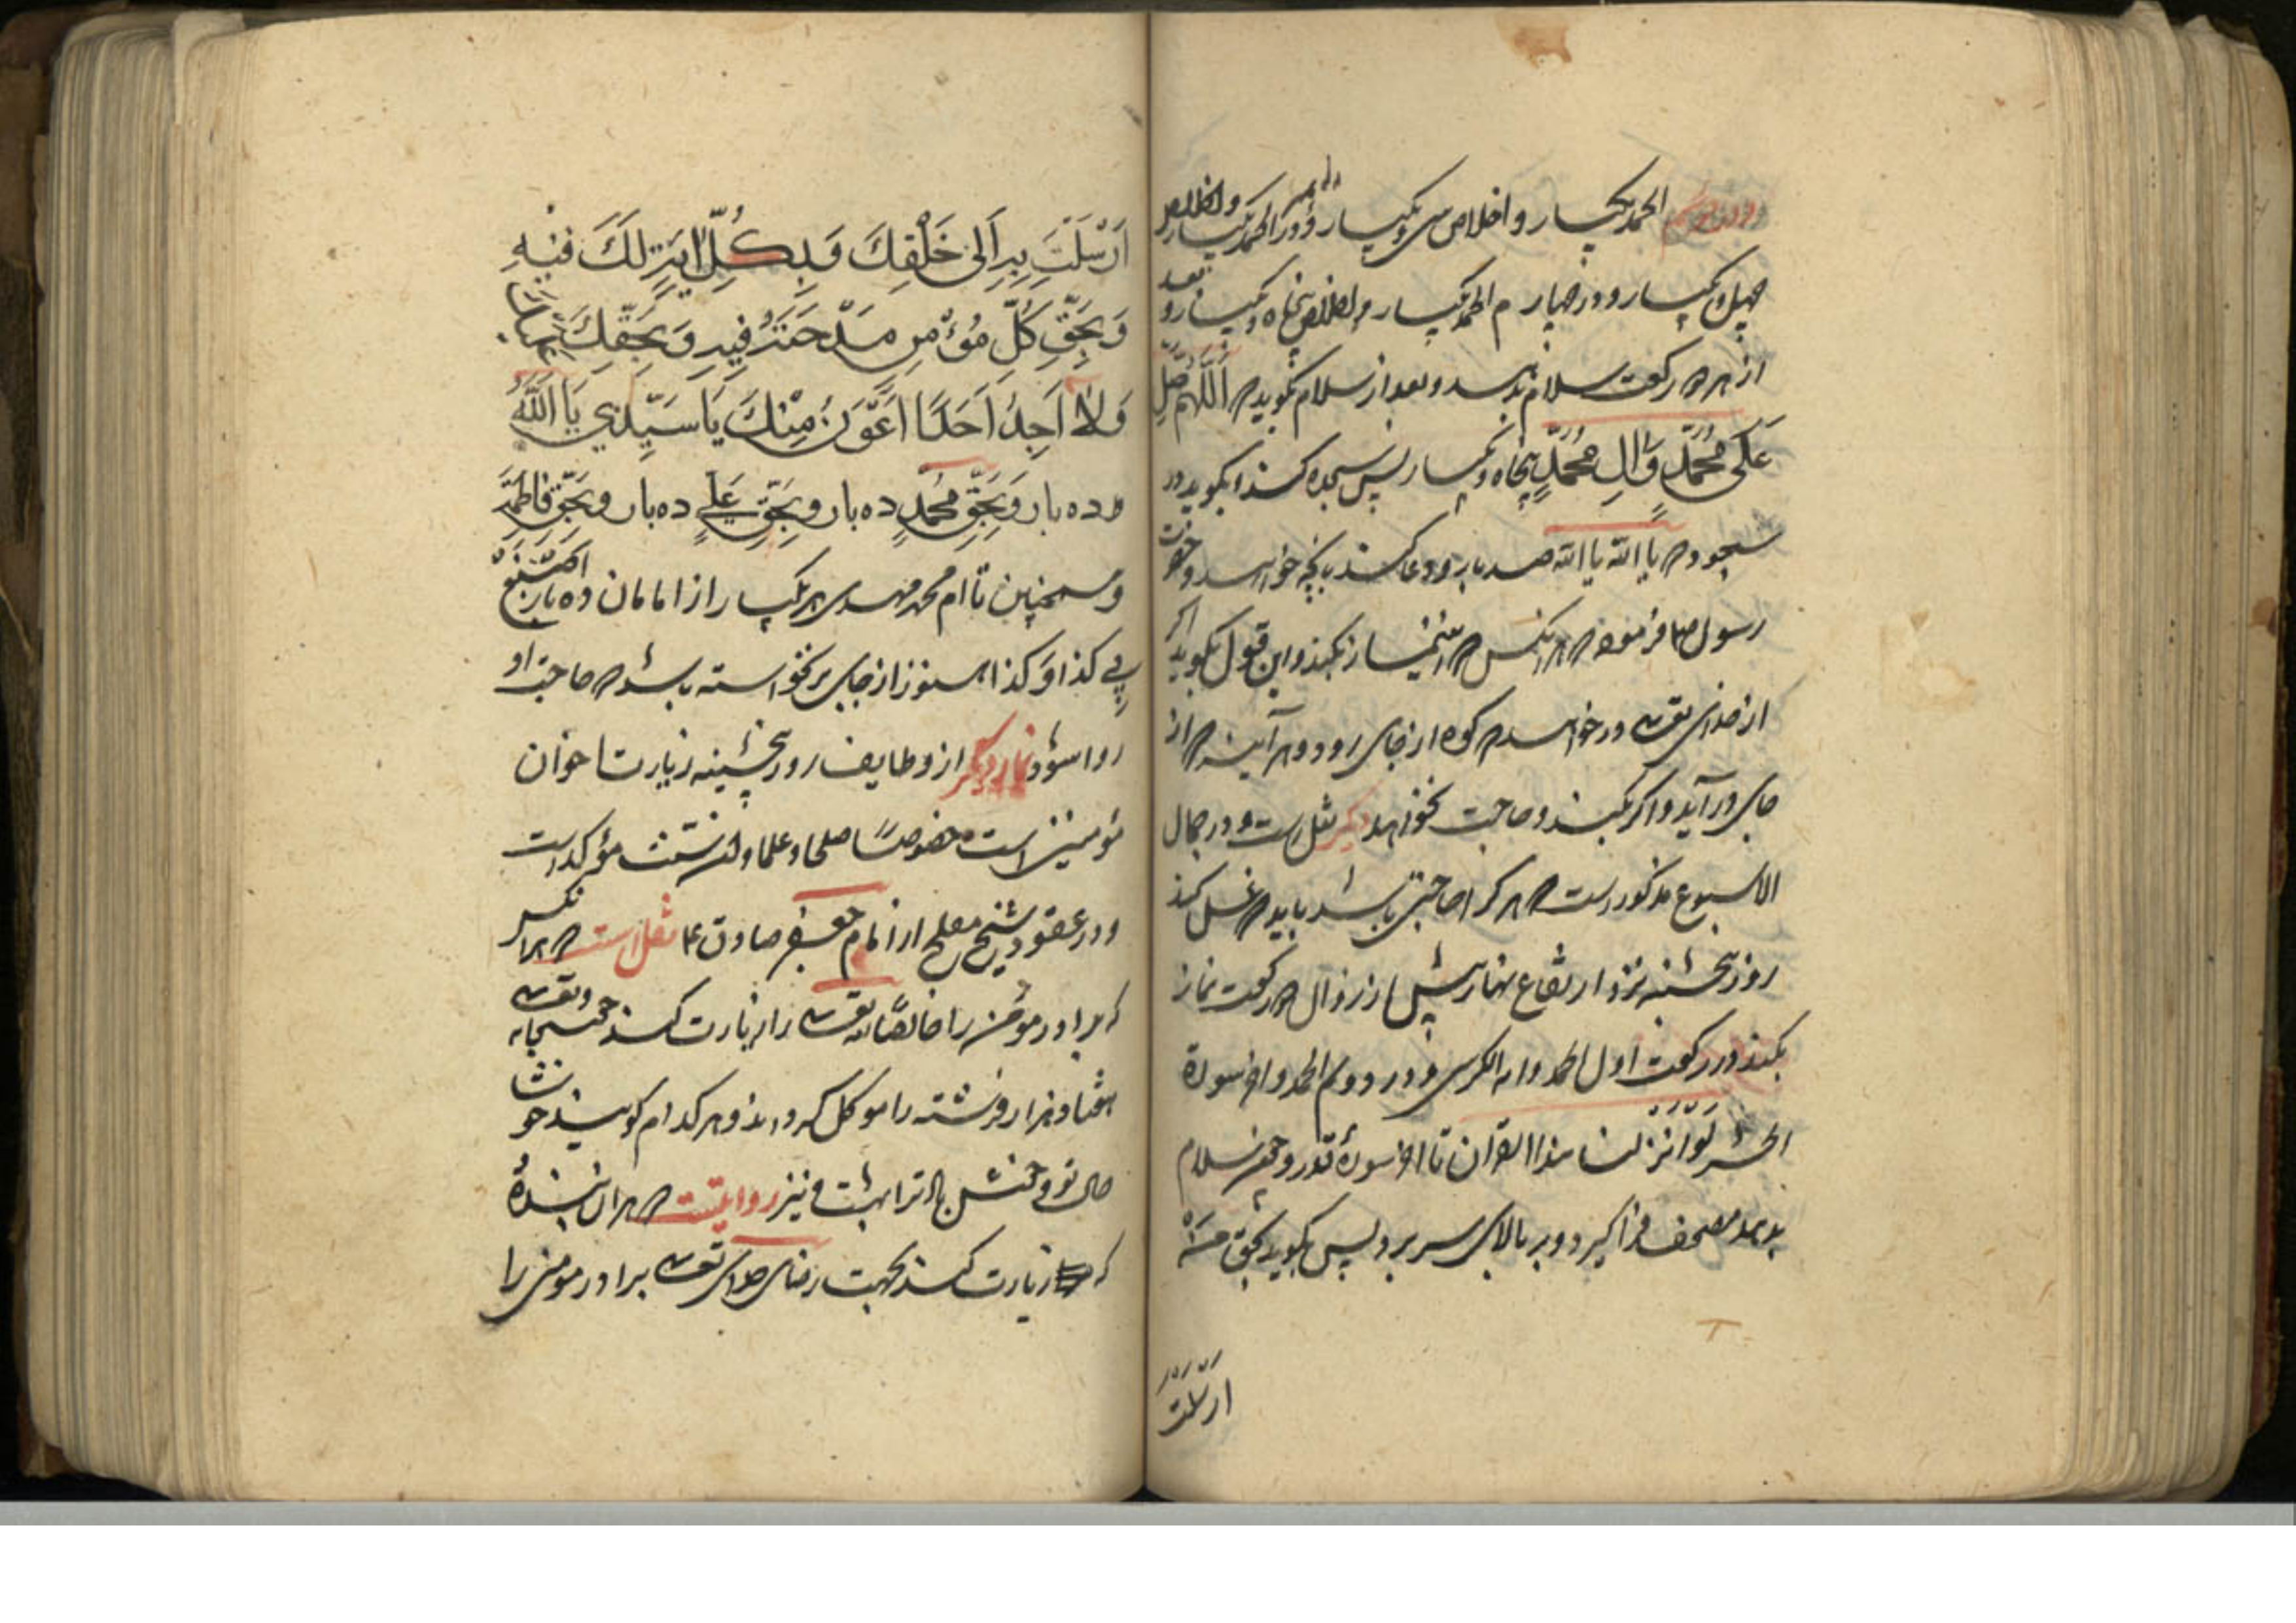 الحمد یکبار و اخلاص سی و یکبار و در الحمد یکبار و اخلاص
چهل و یکبار و در چهارم الحمد یکبار و اخلاص پنجاه و یکبار و بعد
از هر دو رکعت سلام بدهد و بعد از سلام بگوید که اَللّهُمَّ صَلِّ
عَلَی مُحَمَّدٍ وَ آلِ مُحَمَّدٍ پنجاه و یکبار پس سجده کند و بگوید در
سجود که یا الله یا الله صد بار و دعا کند بانچه خواهد و حضرت
رسول فرموده که هر انکس که این نماز بکند و این قول بگوید اکر
از خدای تعالی در خواهد که کوه از جای رود و هر آینه که از
جای در آید و اکر بکند و حاجت نخواهد دیگر نقل است و در جمال
الاسبوع مذکور است که هر کرا حاجتی باشد باید که غسل کند
روز پنجشنبه نزد ارتفاع نهار پیش از زوال دو رکعت نماز
بکند در رکعت اول الحمد و ایه الکرسی و در دویم الحمد و اخر سورة
الحشر لَوْ اَنْزَلنا هذا القرآن تا اخر سورهٔ و چون سلام
بدهد مصحف فرا گیرد و بر بالای سر برد پس بگوید بحق مَنْ
ارسلت
اَرْسَلْتَ بِهِ اِلیٰ خَلْقِكَ وَ بِكُلِّ ایَةٍ لَكَ فیْهِ
وَ بِحَقِّ كُلِّ مُؤْمِنٍ مَدَحْتَهُ فِیهِ وَ بِحَقِّكَ
وَ لا اَجِدُ اَحَدًا اَعْرَفَ مِنْكَ یَا سَیِّدی یَا اَللّٰهُ
ده بار وَ بِحَقِّ مُحَمَّدٍ ده بار و بِحَقِّ عَلیٍّ ده بار و بِحَقِّ فاطِمَةَ
و همچنین تا ام محمد مهدی هر یکبار از امامان ده بار اِصْنَعْ
بِی كذا وَ كذا هنوز از جای برنخواسته باشد که حاجت او
روا شود نماز دیگر از وظایف روز پنجشنبه زیارت اخوان
مؤمنین است خصوصًا صلحا و علما مؤکد است
و در عقود شیخ از امام جعفر صادق ع نقل است که هر انکس
که برادر مؤمن را خالصًا لله تعالی را زیارت کند حق سبحانه و تعالی
هفتاد هزار فرشته را موکل کرداند و هر کدام کویند خوشا
حال تو و خوش باد ترا بهشت و نیز روایتست که هر ان بندهٔ
که زیارت کند بجهت رضای خدای تعالی برادر مومنی را